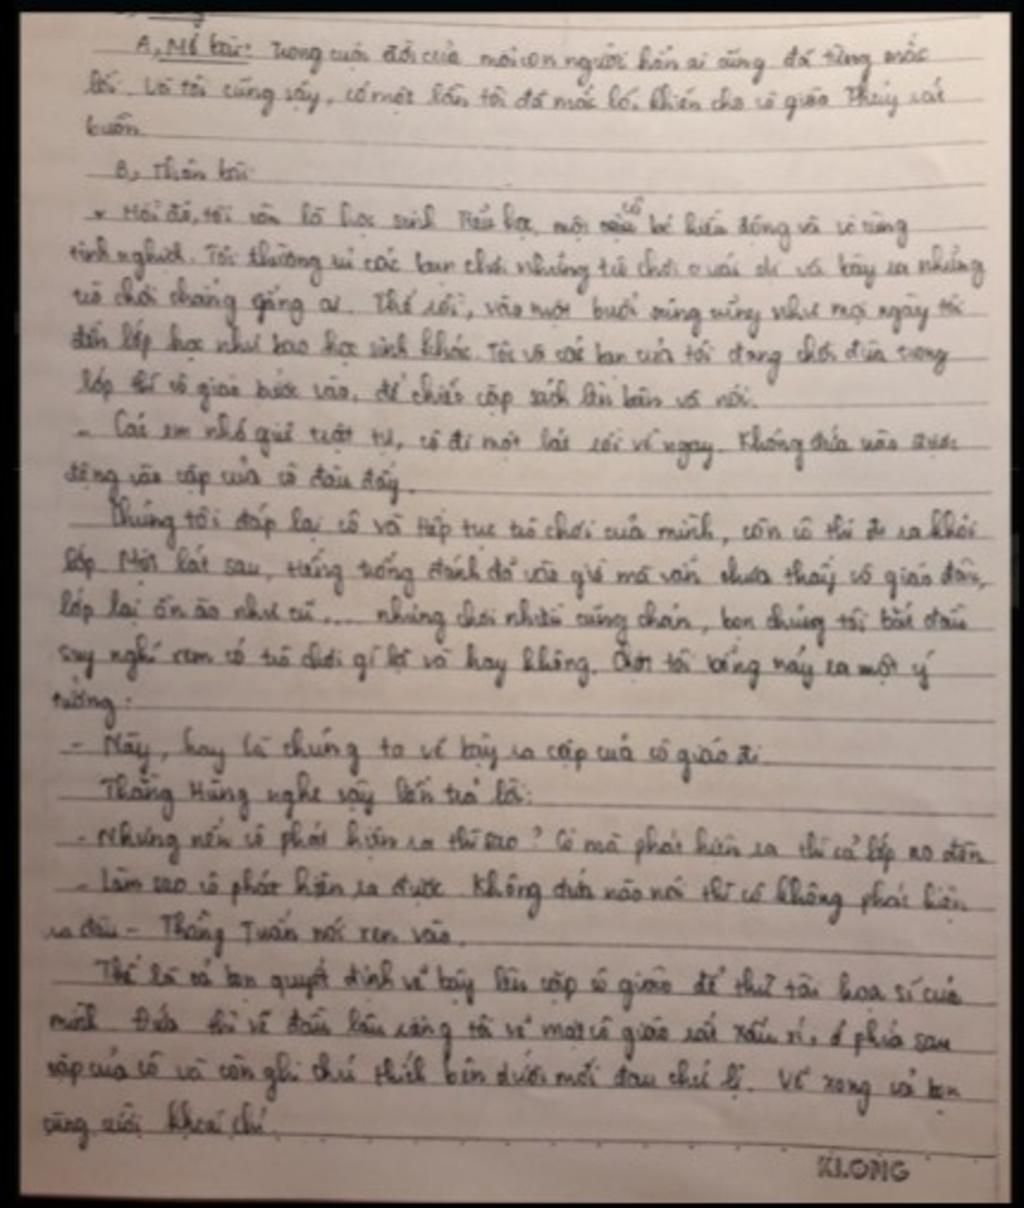 A, Mở bài: Trong cuộc đời của mỗi con người hẳn ai cũng đã từng mắc
lỗi. Và tôi cũng vậy, có một lần tôi đã mắc lỗi khiến cho cô giáo Thủy rất
buồn.
B, Thân bài
Hồi đó, tôi còn là học sinh Tiểu học, một cô bé hiếu động và vô cùng
tinh nghịch. Tôi thường rủ các bạn chơi những trò chơi quái dị và bày ra những
trò chơi chẳng giống ai. Thế rồi, vào một buổi sáng cũng như mọi ngày tôi
đến lớp học như bao học sinh khác. Tôi và các bạn của tôi đang chơi đùa trong
lớp thì cô giáo bước vào, để chiếc cặp sách lên bàn và nói.
- Các em nhớ giữ trật tự, cô đi một lát rồi về ngay. Không đứa nào được
động vào cặp của cô đâu đấy.
Chúng tôi đáp lại cô và tiếp tục trò chơi của mình, còn cô thì đi ra khỏi
lớp. Một lát sau, tiếng trống đánh đã vào giờ mà vẫn chưa thấy cô giáo đâu,
lớp lại ồn ào như cũ.... nhưng chơi nhiều cũng chán, bọn chúng tôi bắt đầu
suy nghĩ xem có trò chơi gì lạ và hay không. Chợt tôi bỗng nảy ra một ý
tưởng:
- Này, hay là chúng ta vẽ bậy ra cặp của cô giáo đi
Thằng Hùng nghe vậy liền trả lời:
- Nhưng nếu cô phát hiện ra thì sao? Cô mà phát hiện ra thì cả lớp no đòn
- Làm sao cô phát hiện ra được. Không đứa nào nói thì cô không phát hiện
ra đâu - Thằng Tuấn nói xen vào.
Thế là cả bọn quyết định vẽ bậy lên cặp cô giáo để thử tài họa sĩ của
mình. Đứa thì vẽ đầu lâu, tôi vẽ một cô giáo rất xấu xí, ở phía sau
cặp của cô và còn ghi chú thích bên dưới. Vẽ xong cả bọn
cùng cười khoái chí.
KLONG